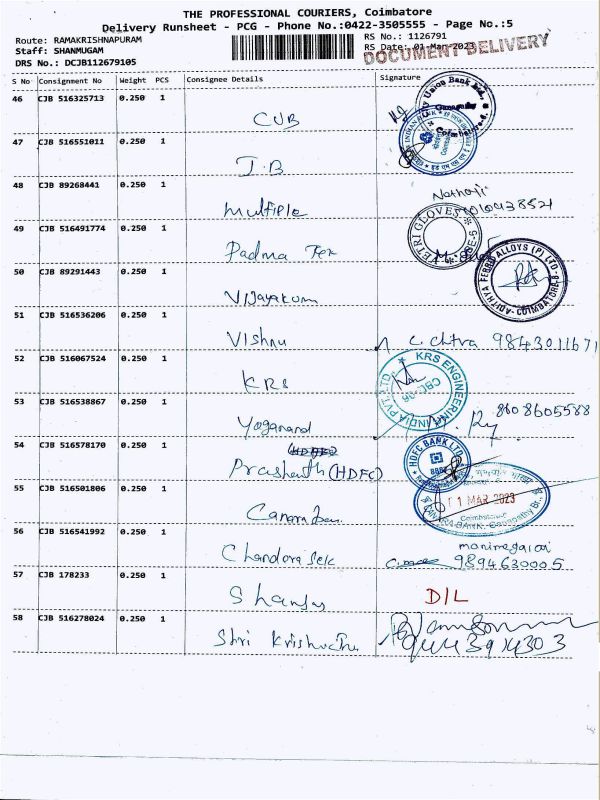 THE PROFESSIONAL COURIERS, Coimbatore
Delivery Runsheet - PCG - Phone No.:0422-3505555 - Page No.:5
Route: RAMAKRISHNAPURAM
Staff: SHANMUGAM
DRS No.: DCJB112679105
RS No.: 1126791
RS Date: 01-Mar-2023
DOCUMENT DELIVERY
S No Consignment No Weight PCS Consignee Details Signature
46 CJB 516325713 0.250 1
CUB
47 CJB 516551011 0.250 1
I.B
48 CJB 89268441 0.250 1
Multiple
49 CJB 516491774 0.250 1
Padma Tex
50 CJB 89291443 0.250 1
Vijayakum
ADITHYA FERRO ALLOYS (P) LTD. COIMBATORE-
51 CJB 516536206 0.250 1
Vishnu 9843011671
52 CJB 516067524 0.250 1
KRS
KRS ENGINEERING INDIA PVT. LTD
CBE-06
53 CJB 516538867 0.250 1
Yoganand 8608605588
54 CJB 516578170 0.250 1
Prashanth (HDFC)
HDFC BANK LTD
55 CJB 516501806 0.250 1
Canara
MAR 2023
CANARA BANK, Ganapathy Br.
56 CJB 516541992 0.250 1
9894630005
57 CJB 178233 0.250 1
D/L
58 CJB 516278024 0.250 1
Shri